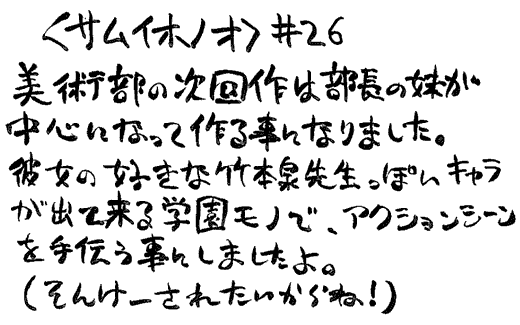 〈サムイホノオ〉#26
美術部の次回作は部長の妹が
中心になって作る事になりました。
彼女の好きな竹本泉先生っぽいキャラ
が出て来る学園モノで、アクションシーン
を手伝う事にしましたよ。
(そんけーされたいからね!)